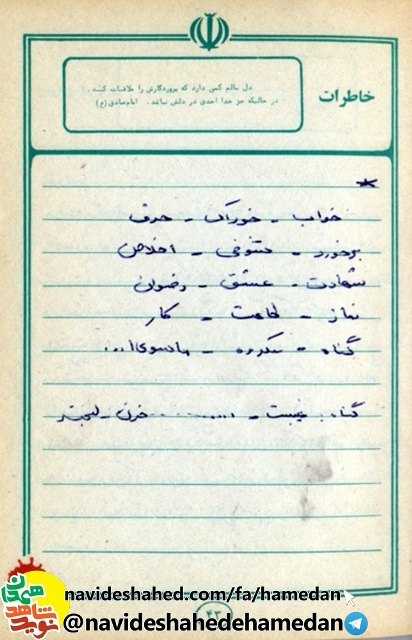 خاطرات
دل سالم کسی دارد که پروردگارش را ملاقات کند .
در حالیکه جز خدا احدی در دلش نباشد . امام صادق (ع)
خواب - خوراک - حرف
برخورد - شوخی - اخلاص
شهادت - عشق - رضوان
نماز - طاعت - کار
گناه - مکروه - ماسوی ا...
گناه. غیبت - ........... حزن -
۴۳
navideshahed.com/fa/hamedan
@navideshahedehamedan
نوید شاهد همدان